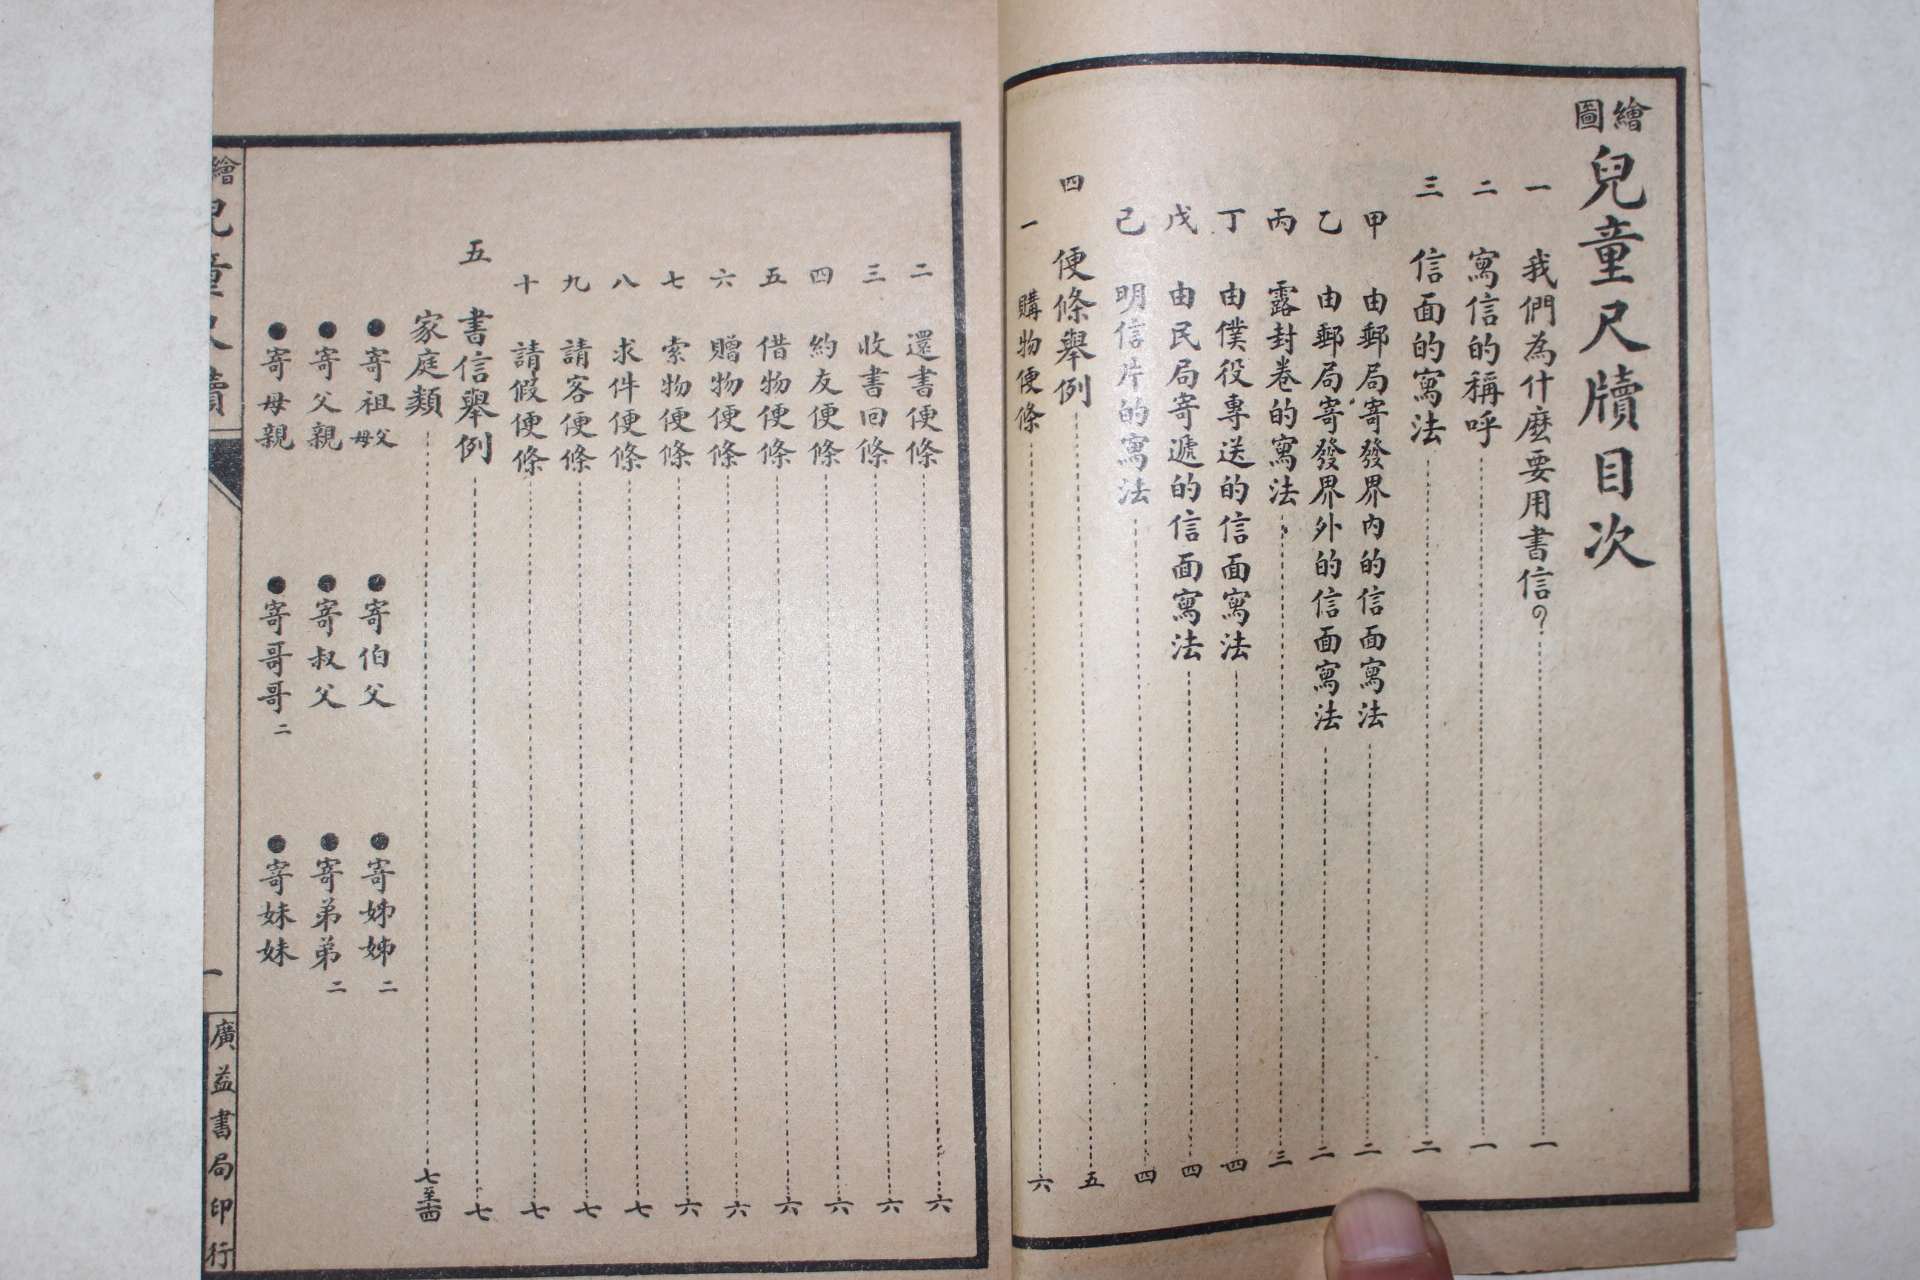 繪圖兒童尺牘目次
一 我們為什麼要用書信？ 一
二 寫信的稱呼 一
三 信面的寫法 二
甲 由郵局寄發界內的信面寫法 二
乙 由郵局寄發界外的信面寫法 二
丙 露封卷的寫法 三
丁 由僕役專送的信面寫法 四
戊 由民局寄遞的信面寫法 四
己 明信片的寫法 四
四 便條舉例 五
一 購物便條 六
二 還書便條 六
三 收書回條 六
四 約友便條 六
五 借物便條 六
六 贈物便條 六
七 索物便條 六
八 求件便條 七
九 請客便條 七
十 請假便條 七
五 書信舉例 七
家庭類 七至
●寄祖父母 ●寄伯父 ●寄姊姊二
●寄父親 ●寄叔父 ●寄弟弟二
●寄母親 ●寄哥哥二 ●寄妹妹
繪 兒童尺牘 一 廣益書局印行